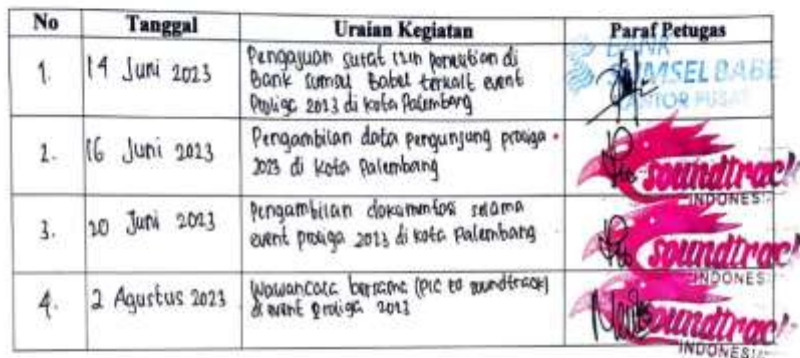 No Tanggal Uraian Kegiatan Paraf Petugas
1. 14 Juni 2023 Pengajuan surat izin penelitian di
Bank Sumsel Babel terkait event
Proliga 2023 di kota Palembang
BANK
SUMSEL BABE
KANTOR PUSAT
2. 16 Juni 2023 Pengambilan data pengunjung proliga
2023 di Kota Palembang
soundtrack
INDONESI
3. 20 Juni 2023 Pengambilan dokumentasi selama
event proliga 2023 di kota Palembang
soundtrack
INDONES
4. 2 Agustus 2023 Wawancara bersama (PIC EO soundtrack)
di event proliga 2023
soundtrack
INDONESIA